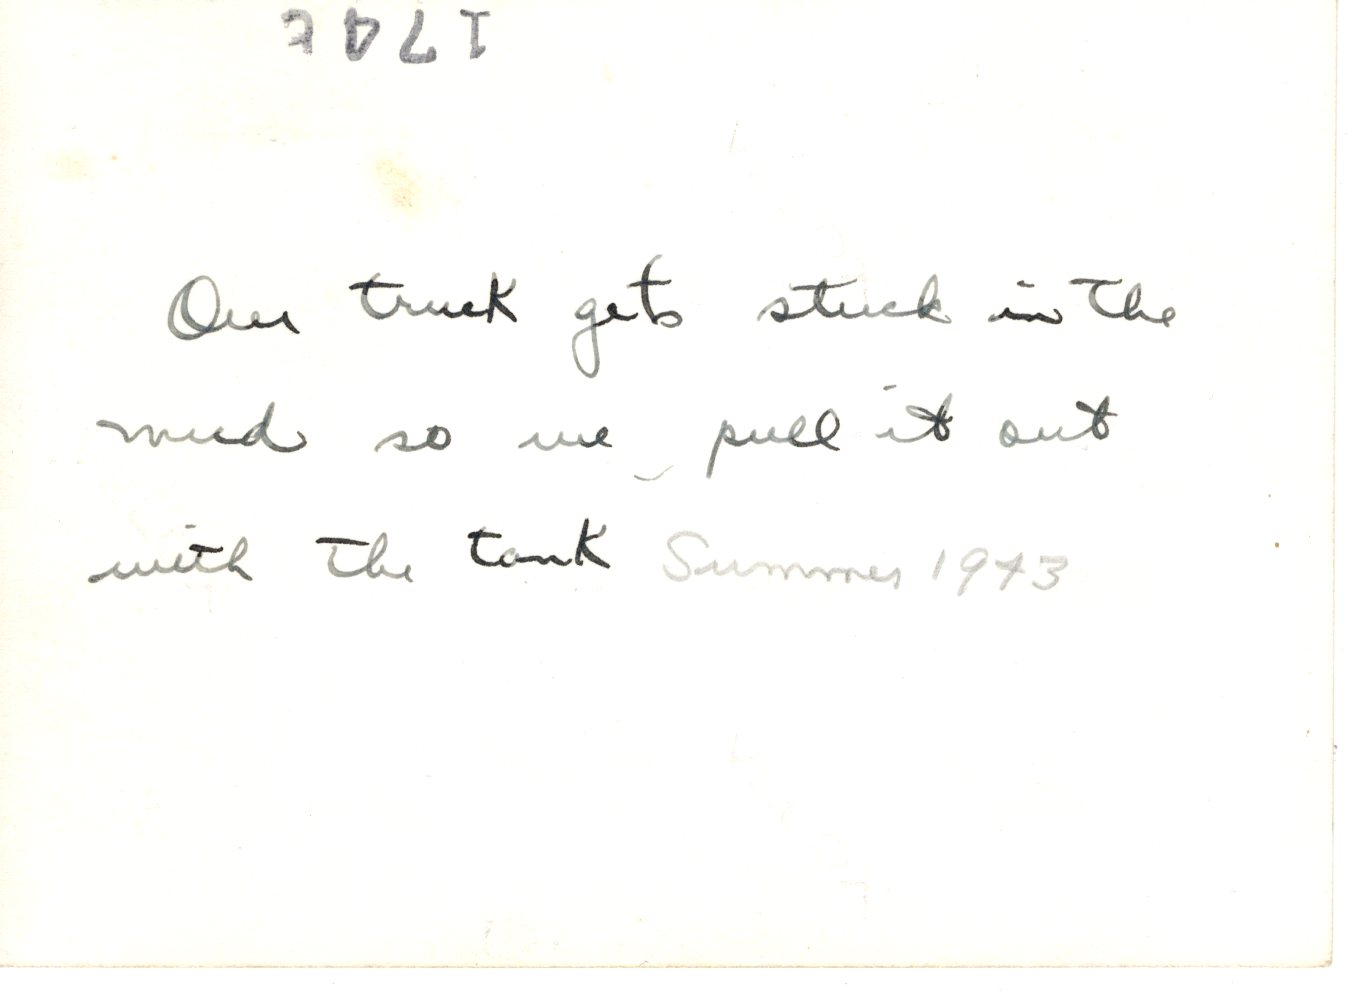 Our truck gets stuck in the
mud so we pull it out
with the tank Summer 1943